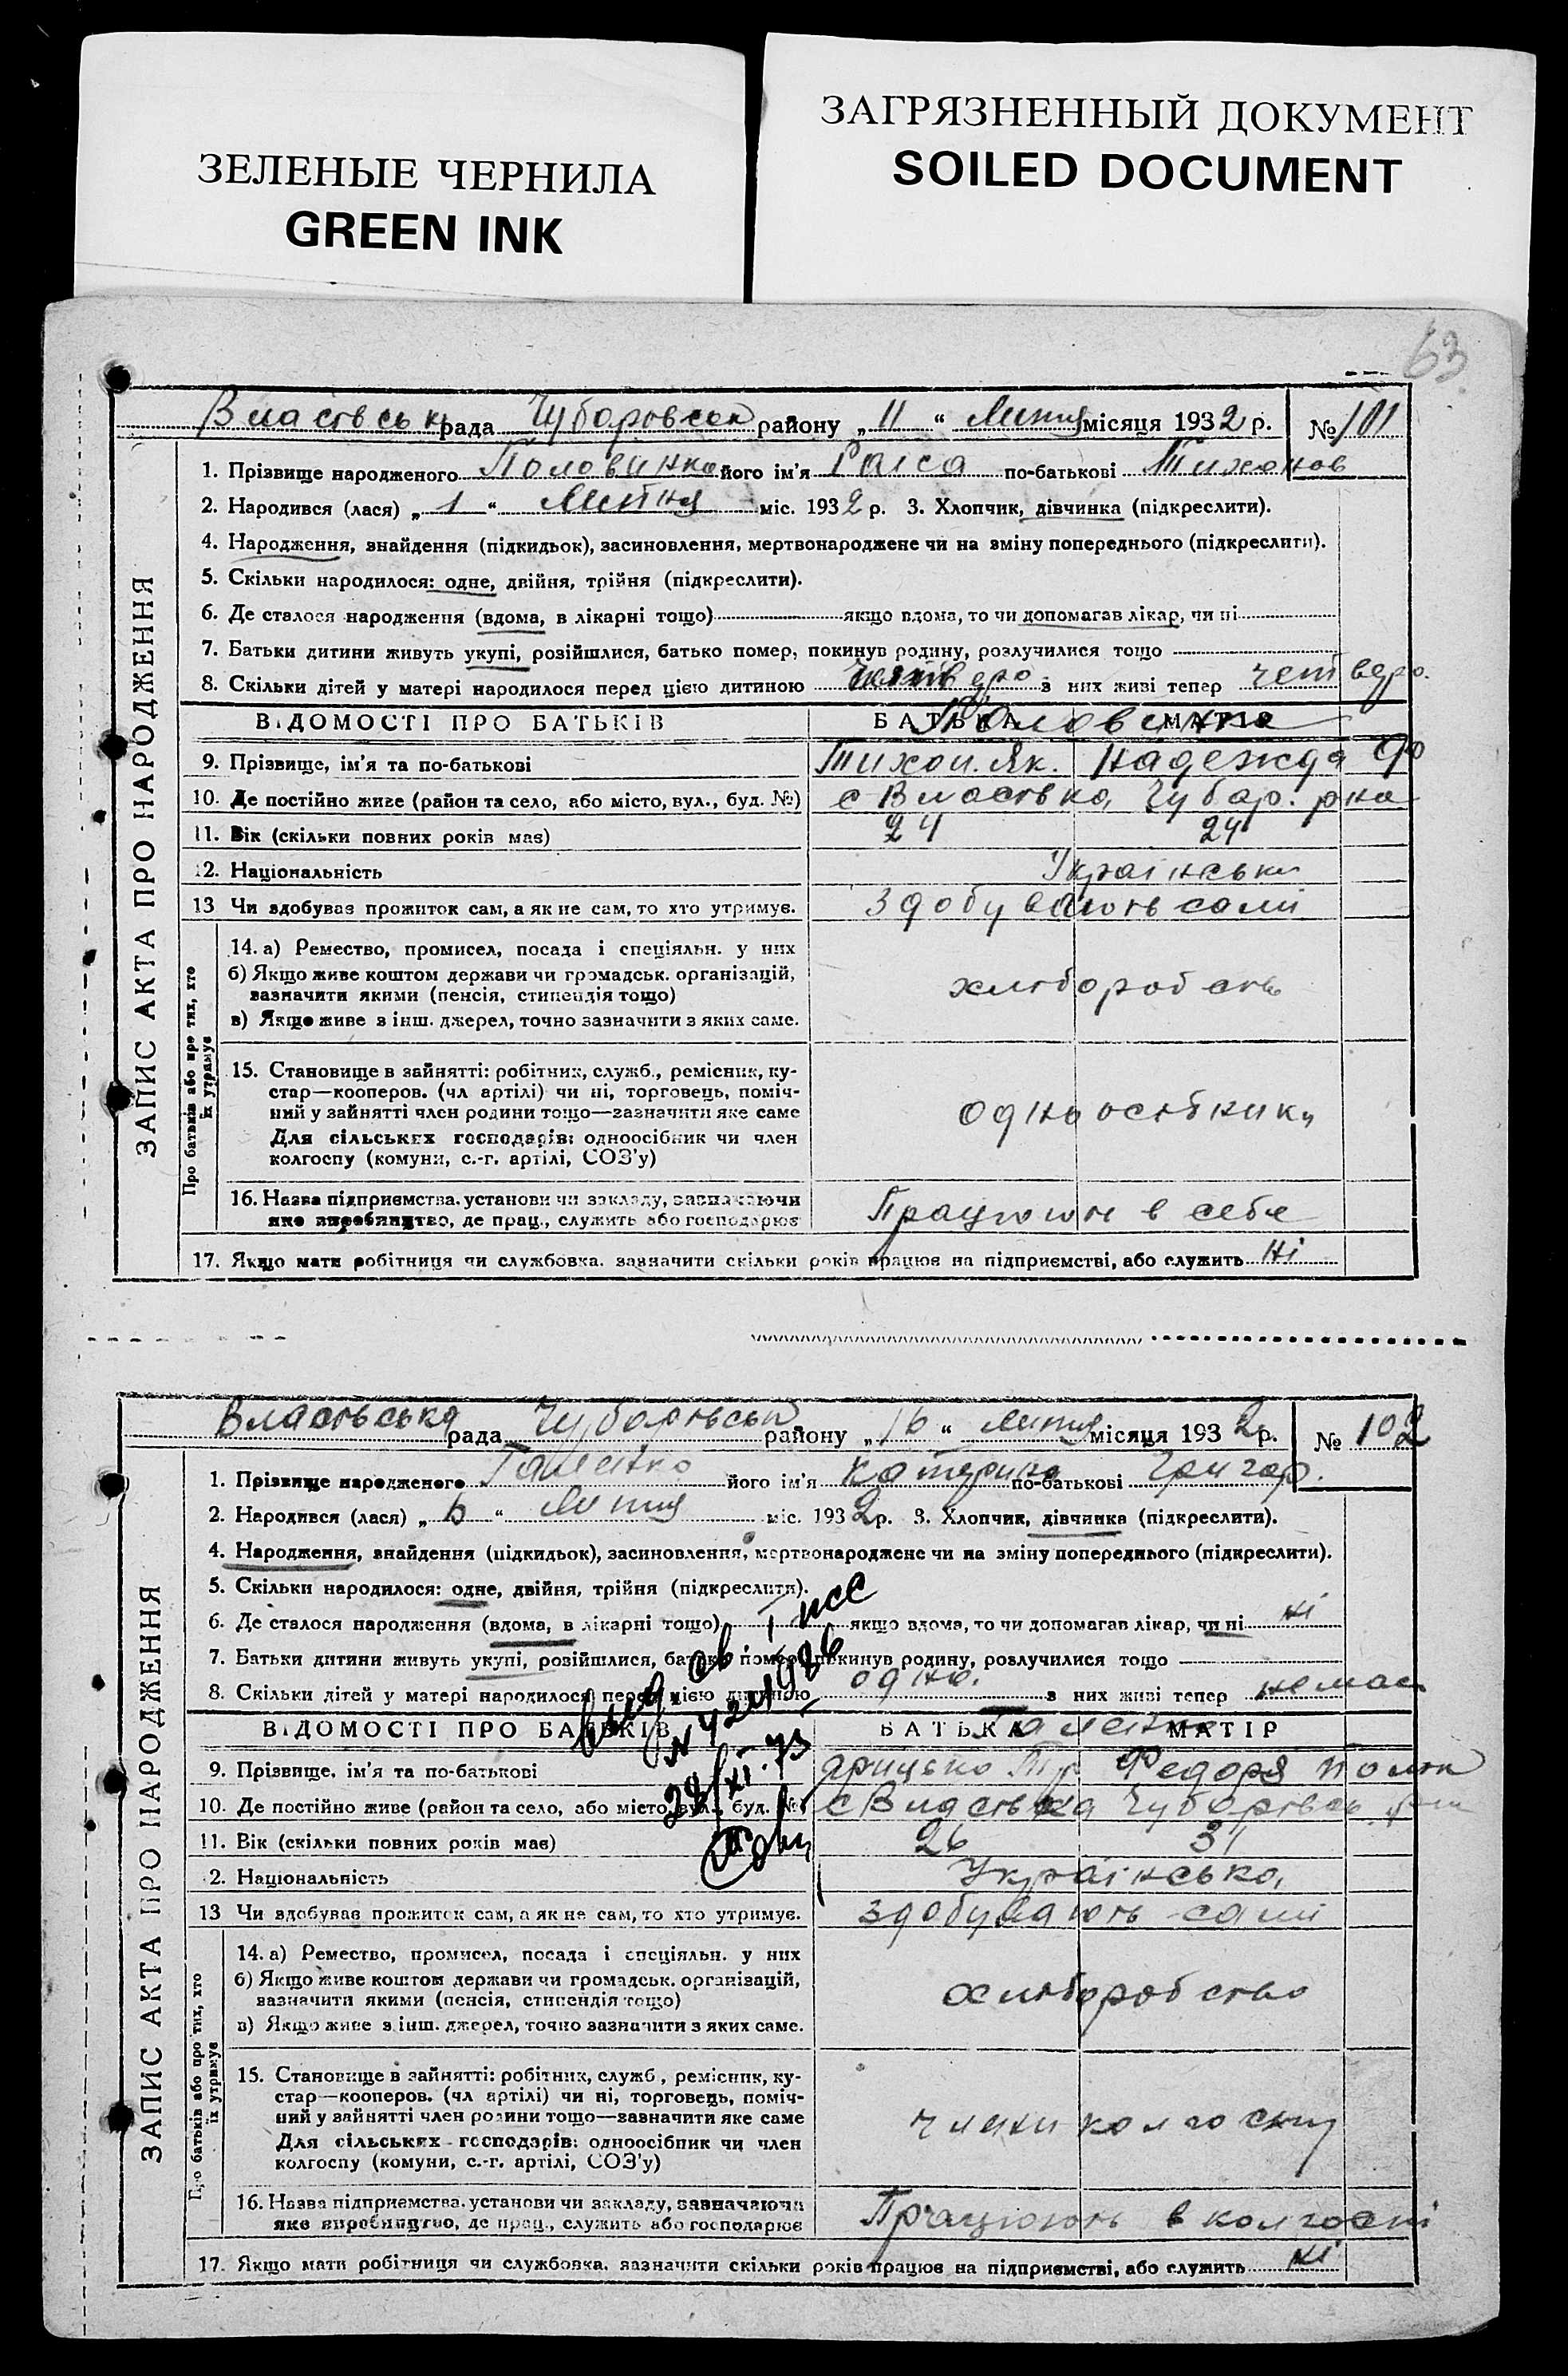 ЗЕЛЕНЫЕ ЧЕРНИЛА
GREEN INK
ЗАГРЯЗНЕННЫЙ ДОКУМЕНТ
SOILED DOCUMENT
63
ЗАПИС АКТА ПРО НАРОДЖЕННЯ
рада Чубаровськ району „ 11 “ Липня місяця 1932 р. № 101
1. Прізвище народженого Половинка його ім'я Раїса по-батькові Тихонов
2. Народився (лася) „ 1 “ Липня міс. 1932 р. 3. Хлопчик, дівчинка (підкреслити).
4. Народження, знайдення (підкидьок), засиновлення, мертвонароджене чи на зміну попереднього (підкреслити).
5. Скільки народилося: одне, двійня, трійня (підкреслити).
6. Де сталося народження (вдома, в лікарні тощо) якщо вдома, то чи допомагав лікар, чи ні
7. Батьки дитини живуть укупі, розійшлися, батько помер, покинув родину, розлучилися тощо
8. Скільки дітей у матері народилося перед цією дитиною з них живі тепер четверо.
ВІДОМОСТІ ПРО БАТЬКІВ БАТЬКА МАТІР
Половинка
9. Прізвище, ім'я та по-батькові Тихон. Як. Надежда
10. Де постійно живе (район та село, або місто, вул., буд. №) с Властівка, Чубар. рна
11. Вік (скільки повних років має) 24 24
12. Національність Українськи
13 Чи здобуває прожиток сам, а як не сам, то хто утримує. Здобувають самі
Про батьків або про тих, хто їх утримує
14. а) Ремество, промисел, посада і спеціяльн. у них
б) Якщо живе коштом держави чи громадськ. організацій,
зазначити якими (пенсія, стипендія тощо) хліборобств
в) Якщо живе з інш. джерел, точно зазначити з яких саме.
15. Становище в зайнятті: робітник, служб., ремісник, ку-
стар—кооперов. (чл артілі) чи ні, торговець, поміч-
ний у зайнятті член родини тощо—зазначити яке саме одноосібники
Для сільських господарів: одноосібник чи член
колгоспу (комуни, с.-г. артілі, СОЗ'у)
16. Назва підприємства, установи чи закладу, зазначаючи
яке виробництво, де прац., служить або господарює Працюють в себе
17. Якщо мати робітниця чи службовка, зазначити скільки років працює на підприємстві, або служить ні
ЗАПИС АКТА ПРО НАРОДЖЕННЯ
Властівська рада Чубарівськ району „ 16 “ Липня місяця 1932 р. № 102
1. Прізвище народженого його ім'я Катерина по-батькові Григор.
2. Народився (лася) „ “ Липня міс. 1932 р. 3. Хлопчик, дівчинка (підкреслити).
4. Народження, знайдення (підкидьок), засиновлення, мертвонароджене чи на зміну попереднього (підкреслити).
5. Скільки народилося: одне, двійня, трійня (підкреслити).
6. Де сталося народження (вдома, в лікарні тощо) якщо вдома, то чи допомагав лікар, чи ні ні
7. Батьки дитини живуть укупі, розійшлися, батько помер, покинув родину, розлучилися тощо
8. Скільки дітей у матері народилося перед цією дитиною одно. з них живі тепер немає
ВІДОМОСТІ ПРО БАТЬКІВ БАТЬКА МАТІР
9. Прізвище, ім'я та по-батькові Федора
10. Де постійно живе (район та село, або місто, вул., буд. №) с Властівка Чубарівськ
11. Вік (скільки повних років має) 26 31
2. Національність Українська,
13 Чи здобуває прожиток сам, а як не сам, то хто утримує. здобувають самі
Про батьків або про тих, хто їх утримує
14. а) Ремество, промисел, посада і спеціяльн. у них
б) Якщо живе коштом держави чи громадськ. організацій,
зазначити якими (пенсія, стипендія тощо) хліборобство
в) Якщо живе з інш. джерел, точно зазначити з яких саме.
15. Становище в зайнятті: робітник, служб., ремісник, ку-
стар—кооперов. (чл артілі) чи ні, торговець, поміч-
ний у зайнятті член родини тощо—зазначити яке саме члени колгоспу
Для сільських господарів: одноосібник чи член
колгоспу (комуни, с.-г. артілі, СОЗ'у)
16. Назва підприємства, установи чи закладу, зазначаючи
яке виробництво, де прац., служить або господарює Працюють в колгоспі
17. Якщо мати робітниця чи службовка, зазначити скільки років працює на підприємстві, або служить ні
28/XI.73